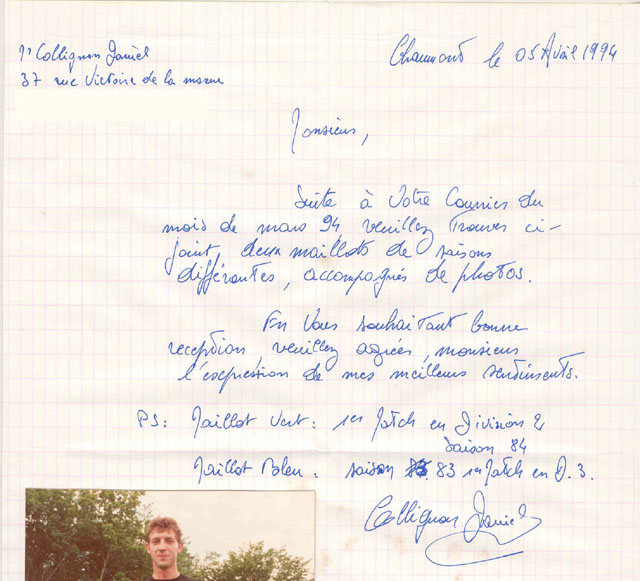 Mr Collignon Daniel
37 rue Victoire de la marne
Chaumont le 05 Avril 1994
Monsieur,
Suite à Votre Courrier du
mois de mars 94, veuillez trouver ci-
joint, deux maillots de saisons
différentes, accompagnés de photos.
En Vous souhaitant bonne
reception, veuillez agréer, monsieur
l'expression de mes meilleurs sentiments.
PS: Maillot Vert: 1er Match en Division 2
saison 84
Maillot Bleu: saison 83 1er Match en D.3.
Collignon Daniel